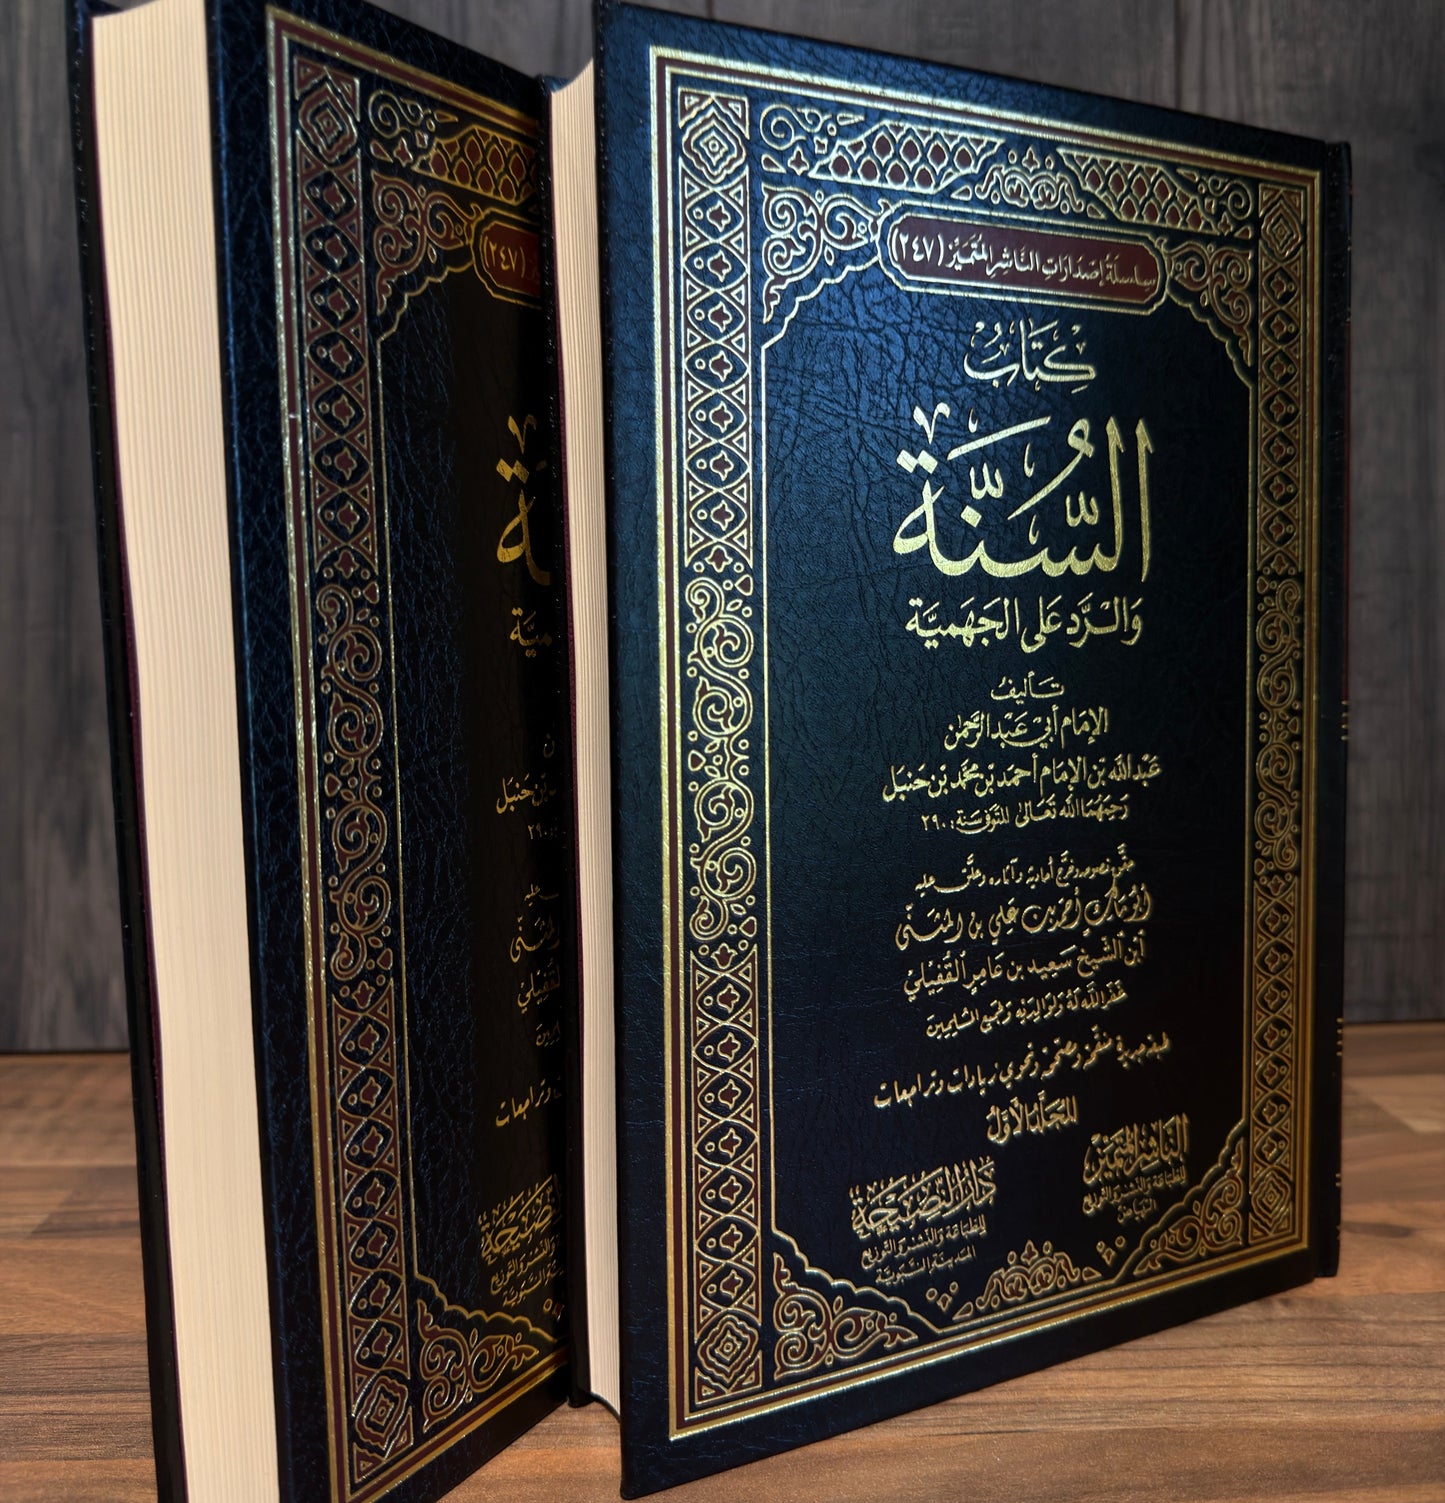 سلسلة إصدارات الناشر المتميز (٢٤٧)
كِتَابُ
السُّنَّة
وَالرَّد عَلى الجَهميَّة
تَأليفُ
الإِمَام أبي عَبْد الرَّحمٰن
عَبْد الله بْن الإِمَام أحمَد بْن محمَّد بْن حَنبَل
رَحِمَهُمَا الله تَعَالىٰ المتَوفى سَنَة: ٢٩٠
حقَّق نصوصه وخرَّج أحاديثه وآثاره وعلَّق عليه
أبو مالك أحمد بن علي بن المثنّى
ابن الشّيخ سَعيد بن عَامِر القُفيليّ
غفر الله لَهُ وَلوَالِدَيه وَلجميع المسْلِمِينَ
طبعة جديدة منقحة ومصححة وتحوي زيادات وتراجعات
المجَلَّد الأوّلُ
النَّاشِر المُتَميِّز
للطِّبَاعَة وَالنَّشْر وَالتَّوزيع
الرِّيَاض
دَارُ النَّصِيحَة
للطِّبَاعَة وَالنَّشْر وَالتَّوزيع
المَدينَة النَّبَويَّة
(٢٤٧)
ـة
ـميَّة
ن
بْن حَنبَل
: ٢٩٠
عليه
المثنّى
القُفيليّ
وتراجعات
وَالنَّشْر وَالتَّوزيع
النَّبَويَّة